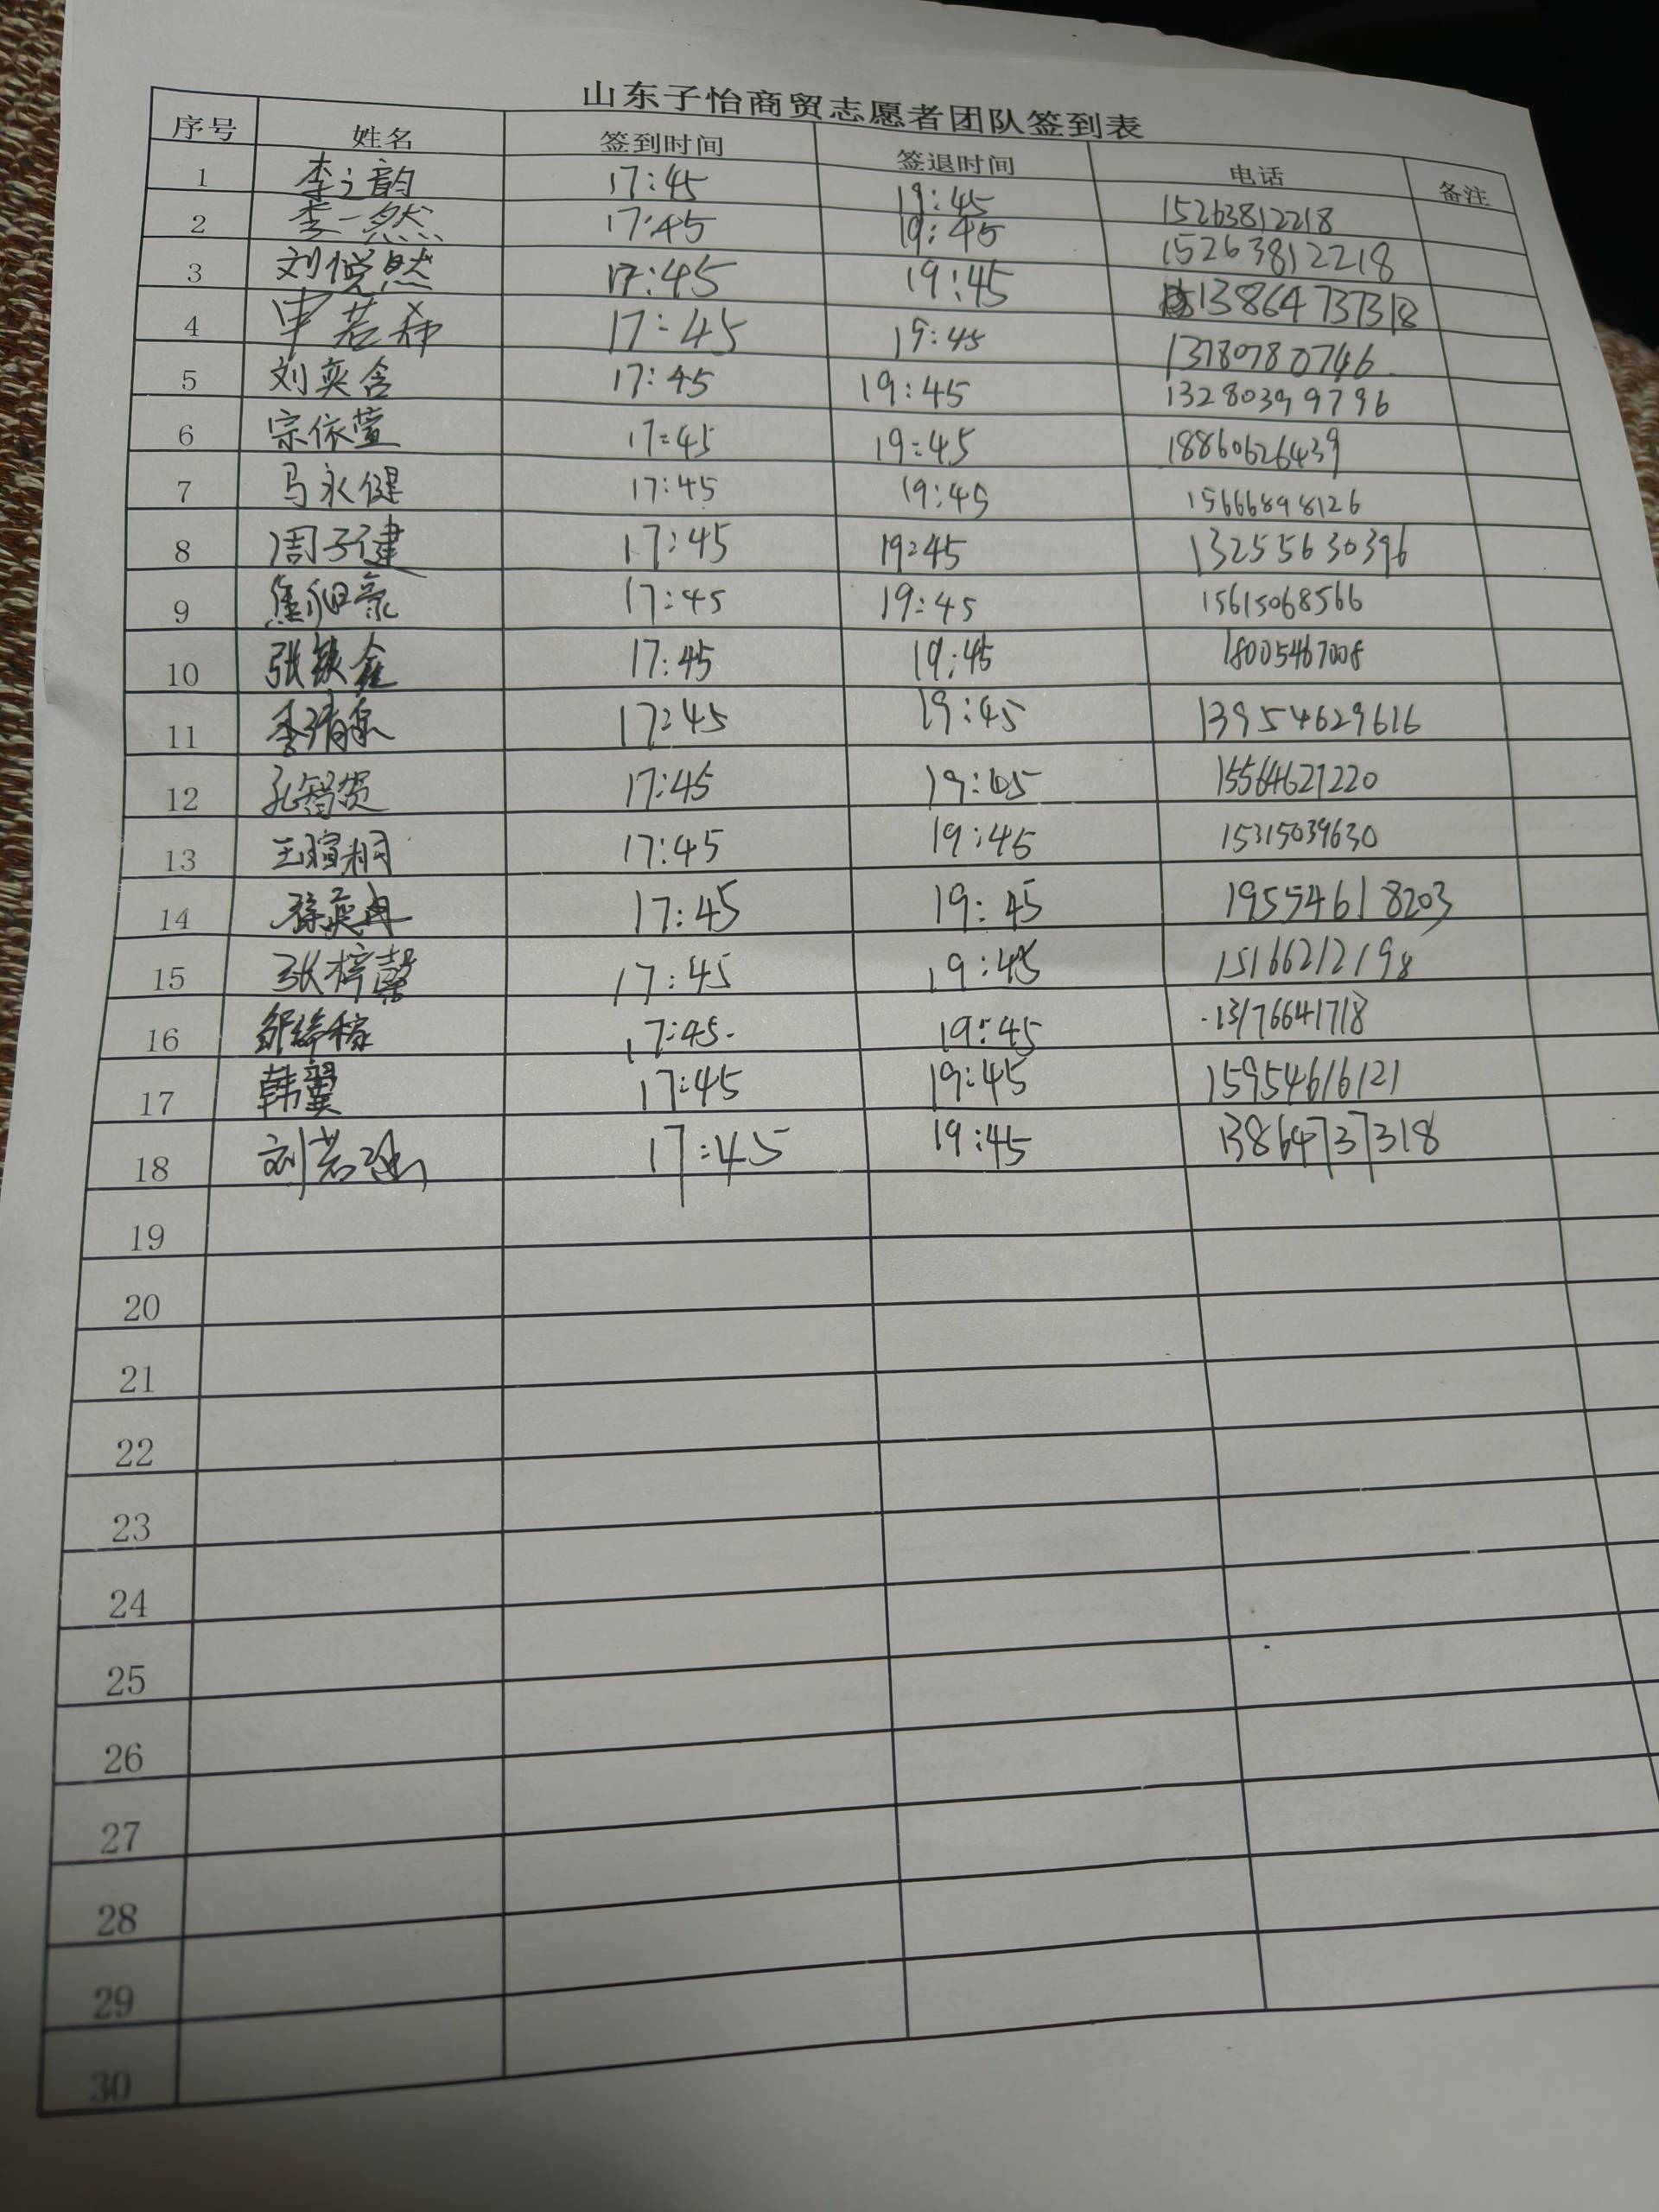 山东子怡商贸志愿者团队签到表
序号 姓名 签到时间 签退时间 电话 备注
1 李之韵 17:45 19:45 15263812218
2 李一然 17:45 19:45 15263812218
3 刘悦然 17:45 19:45 13864737318
4 申若希 17:45 19:45 13780780746
5 刘奕含 17:45 19:45 13280399796
6 宗依萱 17:45 19:45 18860626439
7 马永健 17:45 19:45 15666898126
8 周子健 17:45 19:45 13255630396
9 17:45 19:45 15615068566
10 17:45 19:45 18005467008
11 17:45 19:45 13954629616
12 孔智贺 17:45 19:45 15564621220
13 王瑄桐 17:45 19:45 15315039630
14 徐奕冉 17:45 19:45 19554618203
15 张梓馨 17:45 19:45 15166212198
16 17:45 19:45 13176641718
17 韩翼 17:45 19:45 15954616121
18 刘若涵 17:45 19:45 13864737318
19
20
21
22
23
24
25
26
27
28
29
30